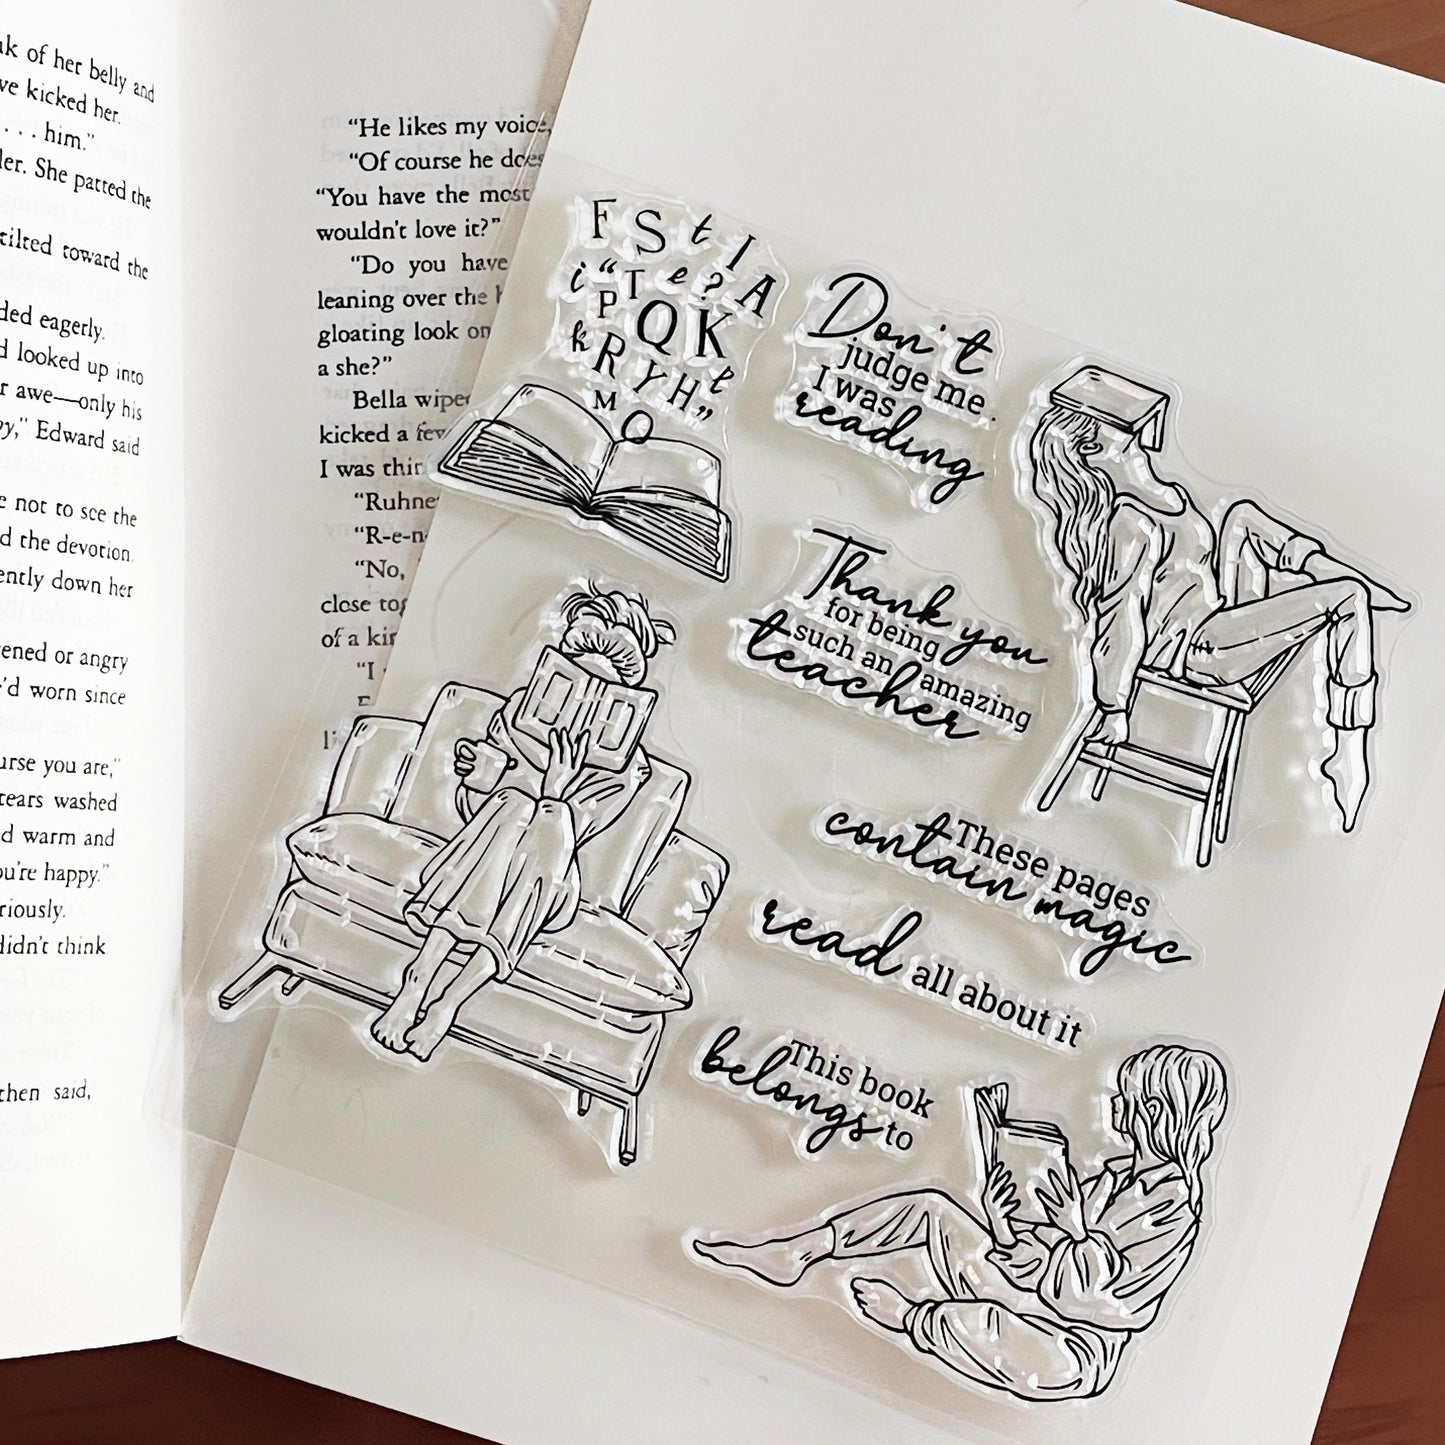 of her belly and
kicked her.
. . . him."
She patted the
tilted toward the
eagerly.
looked up into
awe—only his
Edward said
not to see the
the devotion.
down her
or angry
worn since
you are,"
tears washed
warm and
happy."
didn't think
then said,
"He likes my voice,
"Of course he does
"You have the most
wouldn't love it?"
"Do you have
leaning over the
gloating look on
a she?"
Bella wiped
kicked a few
I was
"No,
close
of a
"I
F S t I
i " T e ? A
P Q K
k R Y H e "
M O
Don't
judge me.
I was
reading
Thank you
for being
such an amazing
teacher
These pages
contain magic
read all about it
This book
belongs to